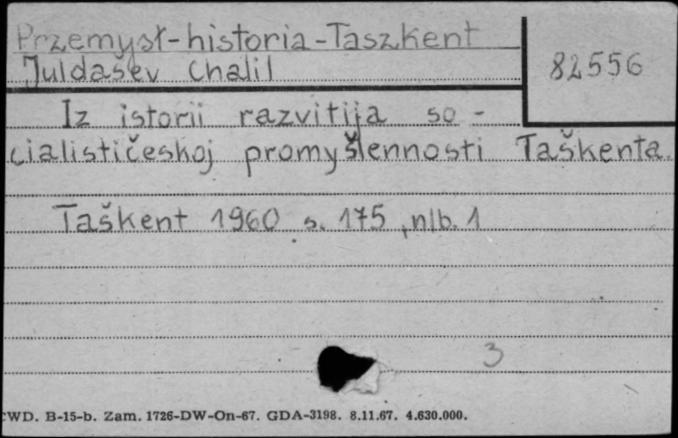 Przemysł-historia-Taszkent
Juldašev Chalil
82556
Iz istorii razvitija so-
cialističeskoj promyšlennosti Taškenta.
Taškent 1960 s. 175, nlb. 1
3
CWD. B-15-b. Zam. 1726-DW-On-67. GDA-3198. 8.11.67. 4.630.000.